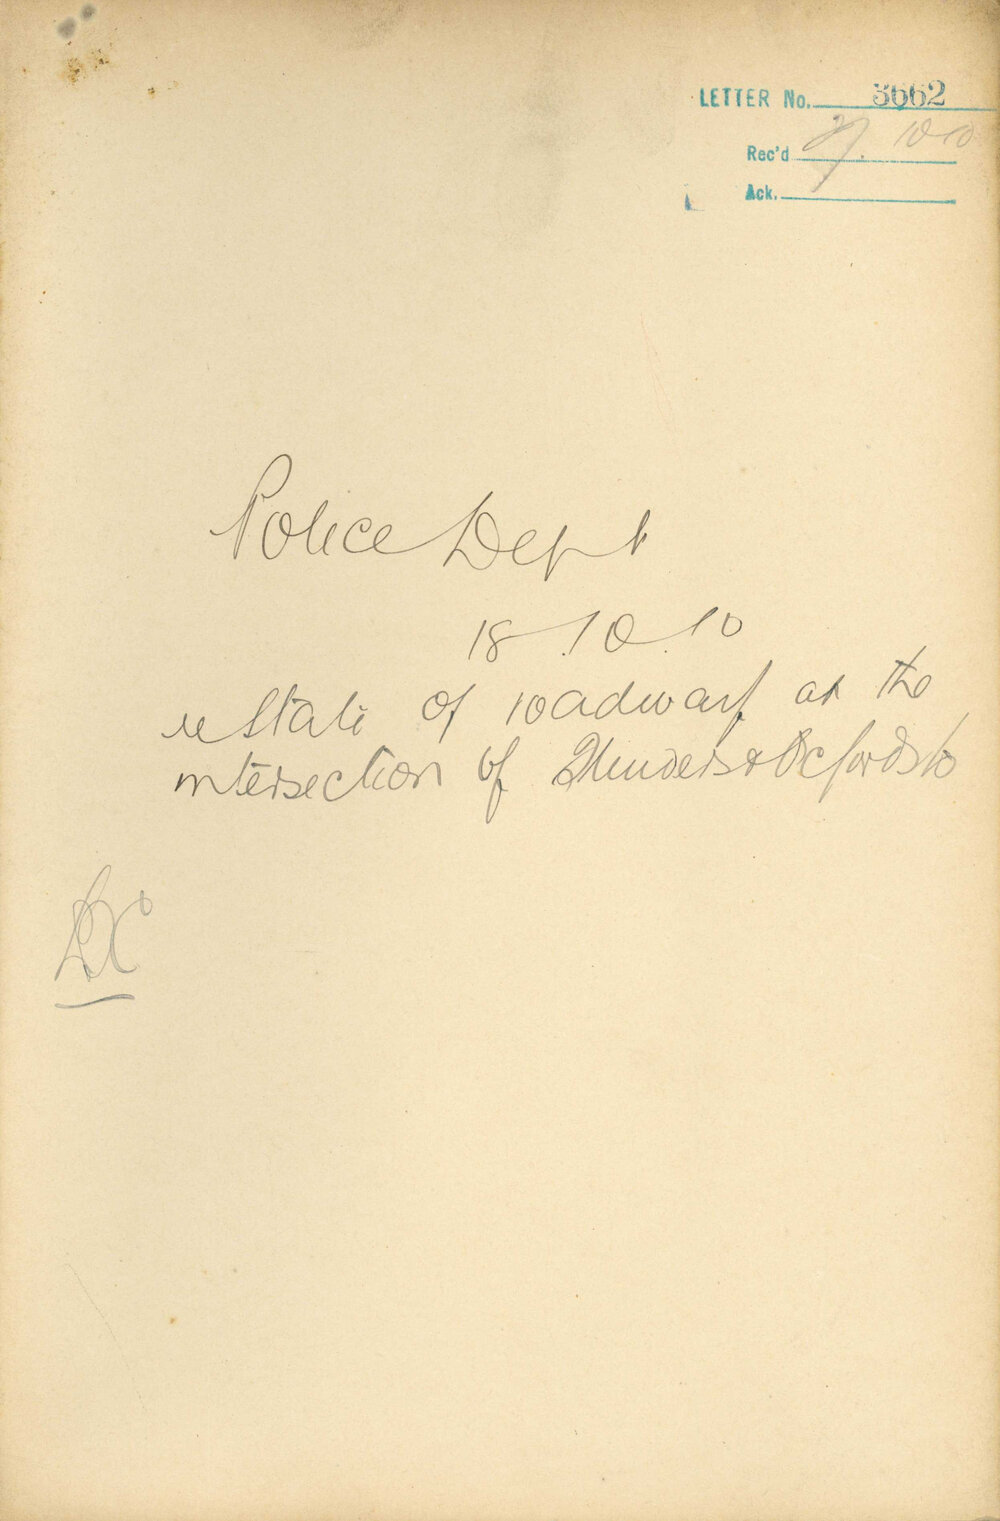 LETTER No. 3662
Rec'd 27.10.10
Ack.
Police Dept
18.10.10
re State of roadway at the
intersection of Flinders & Oxford Sts